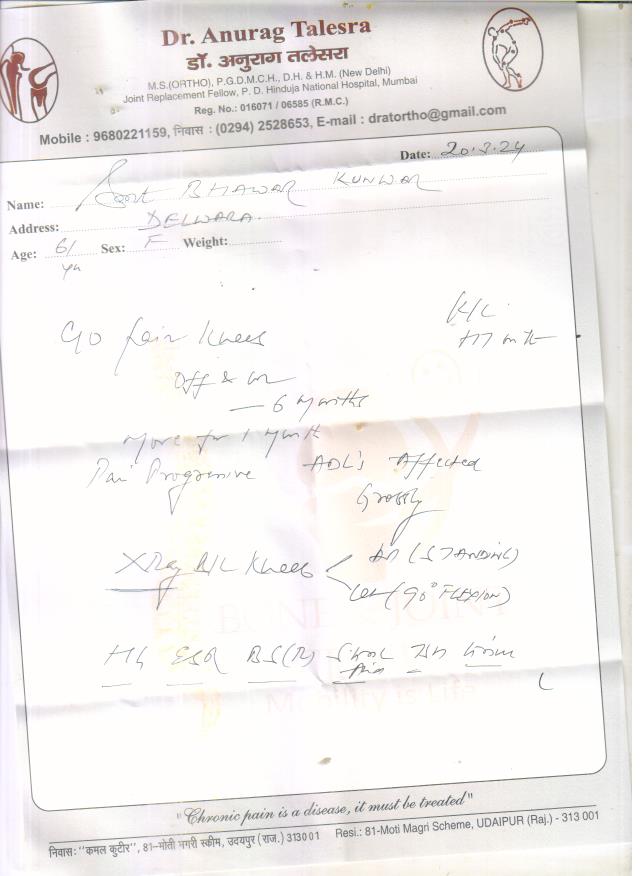 Dr. Anurag Talesra
डॉ. अनुराग तलेसरा
M.S.(ORTHO), P.G.D.M.C.H., D.H. & H.M. (New Delhi)
Joint Replacement Fellow, P. D. Hinduja National Hospital, Mumbai
Reg. No.: 016071 / 06585 (R.M.C.)
Mobile : 9680221159, निवास : (0294) 2528653, E-mail : dratortho@gmail.com
Date: 20.3.24
Name: Smt BHAWAR KUNWAR
Address: DELWARA.
Age: 61 yrs Sex: F Weight:
K/C
HT
C/O Pain Knees
Off & on
— 6 Months
More for 1 Month
Pain Progressive ADL's Affected
Grossly
X Ray B/L Knees AP (STANDING)
Lat (90° FLEXION)
Hb ESR BS(R)
BONE JOINT
Mobility is Life
"Chronic pain is a disease, it must be treated"
निवास: "कमल कुटीर", 81-मोती मगरी स्कीम, उदयपुर (राज.) 313001 Resi.: 81-Moti Magri Scheme, UDAIPUR (Raj.) - 313 001